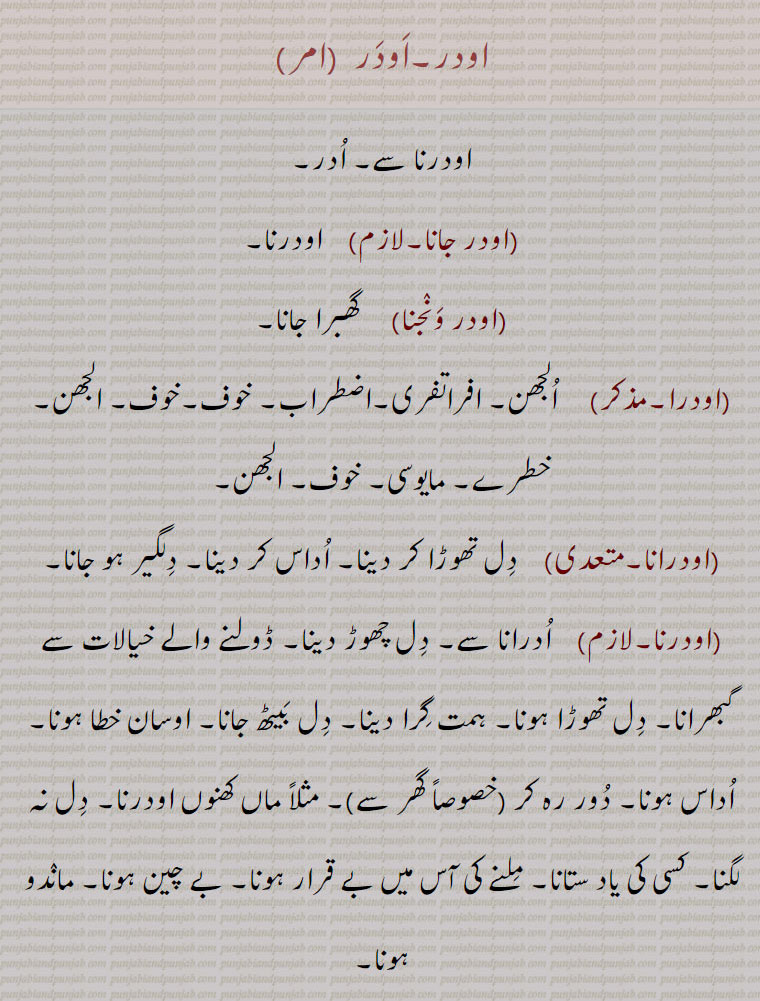 اودر۔اَودَر (امر)
اودرنا سے۔ اُدر۔
(اودر جانا۔لازم) اودرنا۔
(اودر وَنڄنا) گھبرا جانا۔
(اودرا۔مذکر) اُلجھن۔ افراتفری۔اضطراب۔ خوف۔خوف۔ الجھن۔
خطرے۔ مایوسی۔ خوف۔ الجھن۔
(اودرانا۔متعدی) دِل تھوڑا کر دینا۔ اُداس کر دینا۔ دِلگیر ہو جانا۔
(اودرنا۔لازم) اُدرانا سے۔ دِل چھوڑ دینا۔ ڈولنے والے خیالات سے
گبھرانا۔ دِل تھوڑا ہونا۔ ہمت گِرا دینا۔ دِل بَیٹھ جانا۔ اوسان خطا ہونا۔
اُداس ہونا۔ دُور رہ کر (خصوصاً گھر سے)۔ مثلاً ماں کھنوں اودرنا۔ دِل نہ
لگنا۔ کسی کی یاد ستانا۔ مِلنے کی آس میں بے قرار ہونا۔ بے چین ہونا۔ مان٘دو
ہونا۔